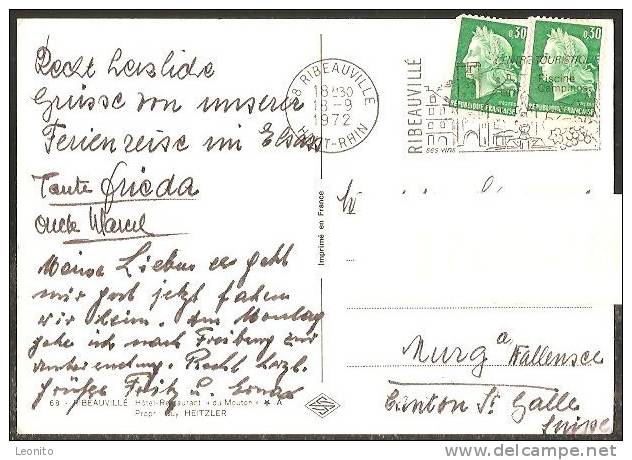 Recht herzliche
Grüsse von unserer
Ferienreise im Elsass
Tante Frieda
Onkel Marcel
Meine Lieben es geht
mir gut jetzt fahren
wir heim. Am Montag
gehe ich nach Freiburg zur
Untersuchung. Recht herzl.
Grüsse Fritz u.
68 - RIBEAUVILLÉ Hôtel-Restaurant « du Mouton » ★ A
Propr. Guy HEITZLER
Imprimé en France
68 RIBEAUVILLE
18H30
18-9
1972
HAUT-RHIN
RIBEAUVILLÉ
ses vins
CENTRE TOURISTIQUE
Piscine
Campings
0,30
REPUBLIQUE FRANÇAISE
POSTES
0,30
REPUBLIQUE FRANÇAISE
Murg a Wallensee
Canton St Galle
Suisse
Leonito
www.delcampe.net